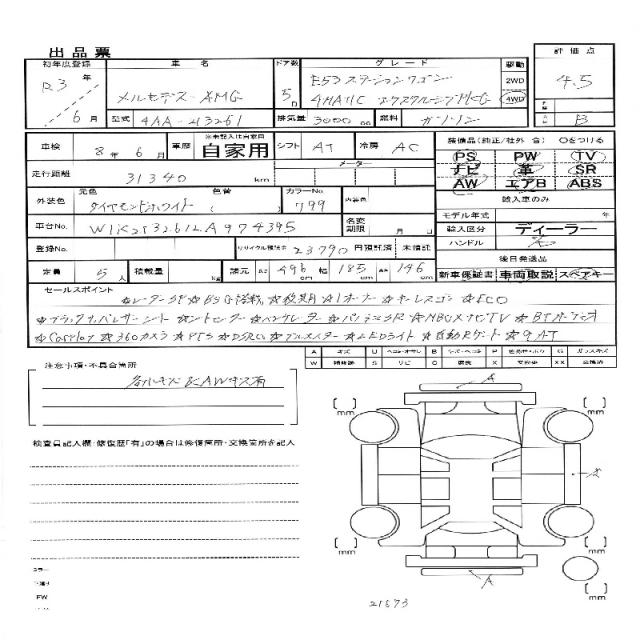 出品票
初年度登録 車名 ドア数 グレード 駆動 評価点
R3年 6月 メルセデス・AMG 5D E53ステーションワゴン 2WD 4.5
4MATIC エクスクルーシブPKG 4WD
型式 4AA-213261 排気量 3000cc 燃料 ガソリン B
車検 8年6月 車歴 ※未記入は自家用 自家用 シフト AT 冷房 AC
装備品(純正/社外 含) Oをつける
PS PW TV
ナビ 革 SR
AW エアB ABS
走行距離 メーター 31340 km
外装色 元色 色替 カラーNo. 内装色
ダイヤモンドホワイト ( ) 799
輸入車のみ
モデル年式 年
車台No. W1K2132612A974395 名変期限 月 日
輸入区分 ディーラー
ハンドル 左
登録No. リサイクル預託金 23790 円 預託済 未預託
後日発送品
定員 5人 積載量 kg 諸元 長さ 496 幅 185 高さ 146 cm
新車保証書 車両取説 スペアキー
セールスポイント
☆レーダーSP ☆BSG搭載 ☆後期 ☆1オーナー ☆キーレスゴー ☆ECO
☆ブラックナッパレザーシート ☆シートヒーター ☆ベンチレーター ☆パノラミックSR ☆MBUXナビTV ☆BTオーディオ
☆Carplay ☆360カメラ ☆PTS ☆DSRC ☆ブルメスター ☆LEDライト ☆自動Rゲート ☆9AT
A キズ U ヘコ・オサレ B キズ・ヘコ P G ガラスキズ
W 補修跡 S サビ C 腐食 X 要交換 XX 交換済
注意事項・不具合箇所
各所キズ ヘ AWキズ有
検査員記入欄:修復歴「有」の場合は修復箇所・交換箇所を記入
[ ] mm
[ ] mm
A
A
[ ] mm
[ ] mm
[ ] mm
カラー
下廻り
EW
21673